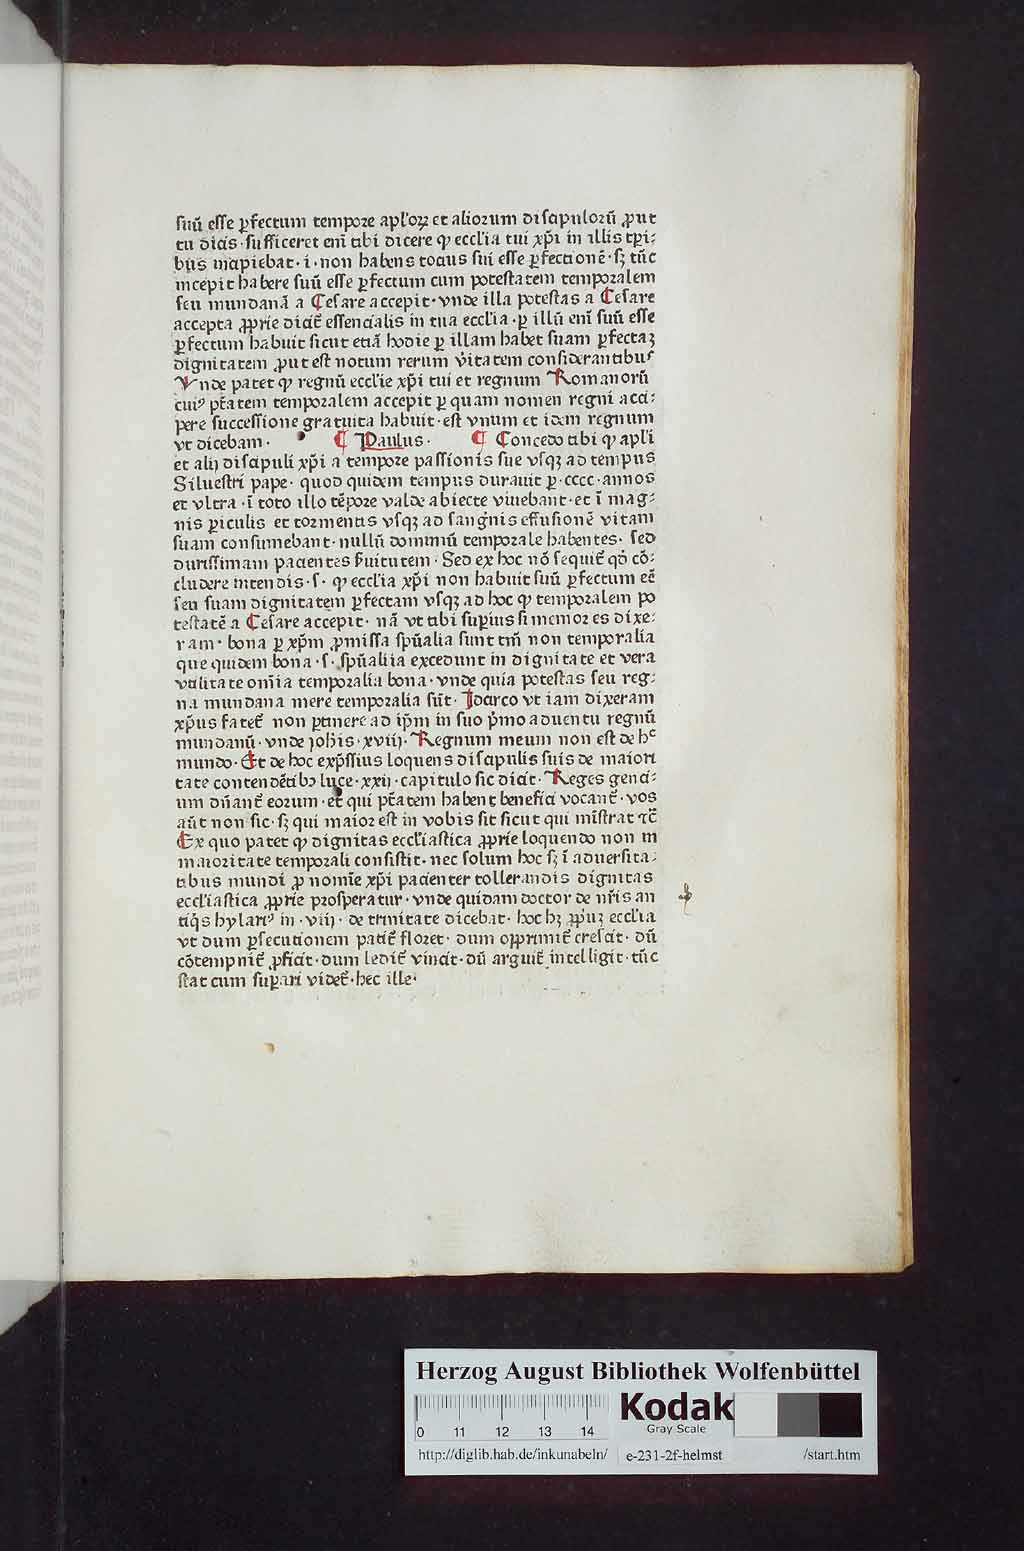 suū esse ꝑfectum tempore apl'oꝝ et aliorum discipulorū ꝓut
tu dicis · sufficeret em̄ tibi dicere ꝙ eccl'ia tui xp̄i in illis tꝑi-
bus incipiebat · i · non habens tocius sui esse ꝑfectionē · sꝫ tūc
incepit habere suū esse ꝑfectum cum potestatem temporalem
seu mundanā a Cesare accepit · vnde illa potestas a Cesare
accepta ꝓprie dicit̄ essencialis in tua eccl'ia · ꝑ illū em̄ suū esse
ꝑfectum habuit sicut etiā hodie ꝑ illam habet suam ꝑfectaꝫ
dignitatem ꝓut est notum rerum v̄itatem considerantibus
Vnde patet ꝙ regnū eccl'ie xp̄i tui et regnum Romanorū
cuiꝰ ptātem temporalem accepit ꝑ quam nomen regni acci-
pere successione gratuita habuit · est vnum et idem regnum
vt dicebam · ¶ Paulus · ¶ Concedo tibi ꝙ apl'i
et alij discipuli xp̄i a tempore passionis sue vsqꝫ ad tempus
Siluestri pape · quod quidem tempus durauit ꝑ · cccc · annos
et vltra · ī toto illo tēpore valde abiecte viuebant · et ī mag-
nis ꝑiculis et tormentis vsqꝫ ad sanḡnis effusionē vitam
suam consumebant · nullū dominiū temporale habentes · sed
durissimam pacientes s̄uitutem · Sed ex hoc nō sequit̄ qd̄ cō-
cludere intendis · s · ꝙ eccl'ia xp̄i non habuit suū ꝑfectum eē
seu suam dignitatem ꝑfectam vsqꝫ ad hoc ꝙ temporalem po
testatē a Cesare accepit · nā vt tibi suꝑius si memor es dixe-
ram · bona ꝑ xp̄m ꝓmissa sp̄ualia sunt tm̄ non temporalia
que quidem bona · s · sp̄ualiia excedunt in dignitate et vera
vtilitate om̄ia temporalia bona · vnde quia potestas seu reg-
na mundana mere temporalia sūt · Idcirco vt iam dixeram
xp̄us fatet̄ non ꝑtinere ad ip̄m in suo p̄mo aduentu regnū
mundanū · vnde joh̄is · xviij · Regnum meum non est de hᶜ
mundo · Et de hoc exp̄ssius loquens discipulis suis de maiori
tate contendētibꝫ luce · xxij · capitulo sic dicit · Reges genci-
um dn̄ant̄ eorum · et qui ptātem habent benefici vocant̄ · vos
aūt non sic · sꝫ qui maior est in vobis sit sicut qui mīstrat ⁊c̄
Ex quo patet ꝙ dignitas eccl'iastica ꝓprie loquendo non in
maioritate temporali consistit · nec solum hoc sꝫ ī aduersita-
tibus mundi ꝓ nomīe xp̄i pacienter tollerandis dignitas
eccl'iastica ꝓprie prosperatur · vnde quidam doctor de nr̄is an
tiq̄s hylariꝰ in · viij · de trinitate dicebat · hoc hꝫ ꝓp'uꝫ eccl'ia
vt dum ꝑsecutionem patit̄ floret · dum opprimit̄ crescit · dū
cōtempnit̄ ꝓficit · dum ledit̄ vincit · dū arguit̄ intelligit · tūc
stat cum suꝑari videt̄ · hec ille ·
Herzog August Bibliothek Wolfenbüttel
0 11 12 13 14
Kodak
Gray Scale
http://diglib.hab.de/inkunabeln/ e-231-2f-helmst /start.htm